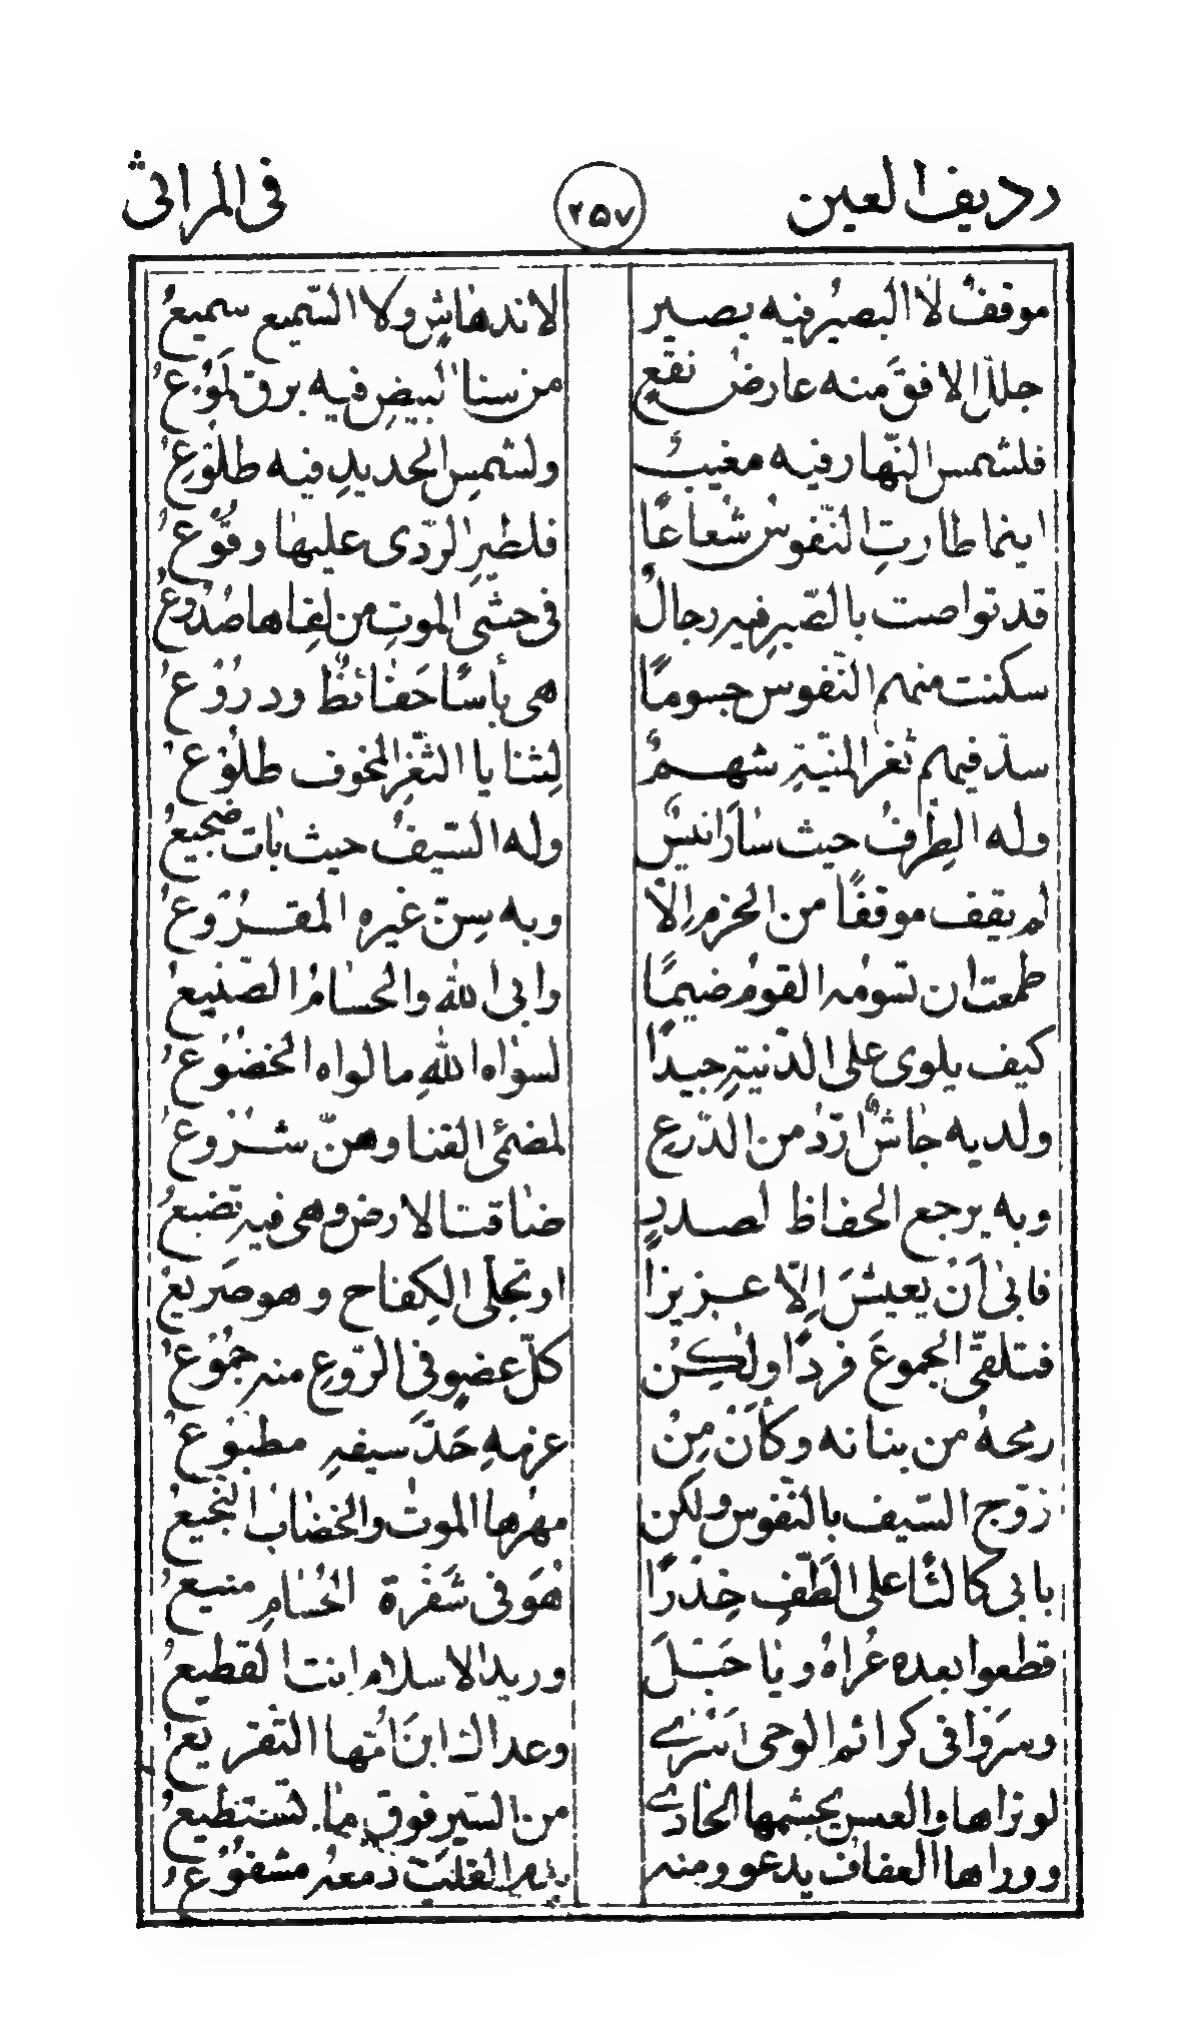 رديف العين ٢٥٧ فى المراثى
موقفٌ لا البصيرُ فيه بصير لاندهاشٍ ولا السّميع سميعُ
جلّل الافقَ منه عارض نقع من سنا البيضِ فيه برق لموُعُ
فلشمس النّهار فيه مغيبٌ ولشمسِ الحديدِ فيه طلوُعُ
اينما طارتِ النّفوسُ شعاعًا فلطيرِ الرّدى عليها وقُوُعُ
قد تواصت بالصّبرِ فيه رجالٌ فى حشى الموتِ من لقاها صُدوُعُ
سكنت منهم النّفوس جسومًا هى بأسًا حَفائظٌ ودروُعُ
سدّ فيهم ثغر المنيّةِ شهمٌ لثنايا الثّغرِ المخوف طلوُعُ
وله الطِرفُ حيث سارَ انيسٌ وله السّيفُ حيث باتَ ضجيعُ
لم يقف موقفًا من الحزمِ الّا وبه سِنّ غيره المقروُعُ
طمعت ان تسومه القومُ ضيمًا وابى الله والحسامُ الصّنيعُ
كيف يلوى على الدّنيّةِ جيدًا لسواه اللهِ ما لواه الخضوُعُ
ولديه جاشٌ اردّ من الدّرع لمضمئى القنا وهنّ شروُعُ
وبه يرجع الحفاظ لصدرٍ ضاقت الارض وهى فيه تضيعُ
فابىٰ اَنْ يعيشَ اِلّا عزيزًا او تجلّى الكِفاح وهو صَريعُ
فتلقّى الجموعَ فردًا ولكِن كلّ عضوٍ فى الرّوعِ منه جموُعُ
رمحهُ من بنانه وكاَن مِنْ عزمهِ حَدّ سيفهِ مطبوُعُ
زوّج السّيف بالنّفوس ولكن مهرها الموتُ والخضابُ النّجيعُ
بابى كالئًا على الطّفِ خِدرًا هُوَ فى شَفرة الحُسامِ منيعُ
قطعوا بعده عُراهُ ويا حَبلَ وريد الاسلام انت القطيعُ
وسرَوا فى كرائم الوحى اَسْرىٰ وعداك ابنَ اُمّها التّقريعُ
لو تراها والعيس يجشمها الحادى من السّيرِ فوق ما تستطيعُ
ووراها العفاف يدعو ومنه القلبِ دمعهُ مشفوُعُ